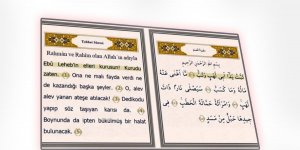 Tebbet Suresi
Rahmân ve Rahîm olan Allah'ın adıyla
Ebû Leheb'in elleri kurusun! Kurudu
zaten. (1) Ona ne malı fayda verdi ne
de kazandığı başka şeyler. (2) O, alev
alev yanan ateşe atılacak! (3) Dedikodu
yapıp söz taşıyan karısı da. (4)
Boynunda da ipten bükülmüş bir halat
bulunacak. (5)
بِسْمِ اللّٰهِ الرَّحْمٰنِ الرَّحِيمِ
تَبَّتْ يَدَا أَبِي لَهَبٍ وَتَبَّ مَا أَغْنَى عَنْهُ
مَالُهُ وَمَا كَسَبَ سَيَصْلَى نَارًا ذَاتَ
لَهَبٍ وَامْرَأَتُهُ حَمَّالَةَ الْحَطَبِ فِي
جِيدِهَا حَبْلٌ مِنْ مَسَدٍ